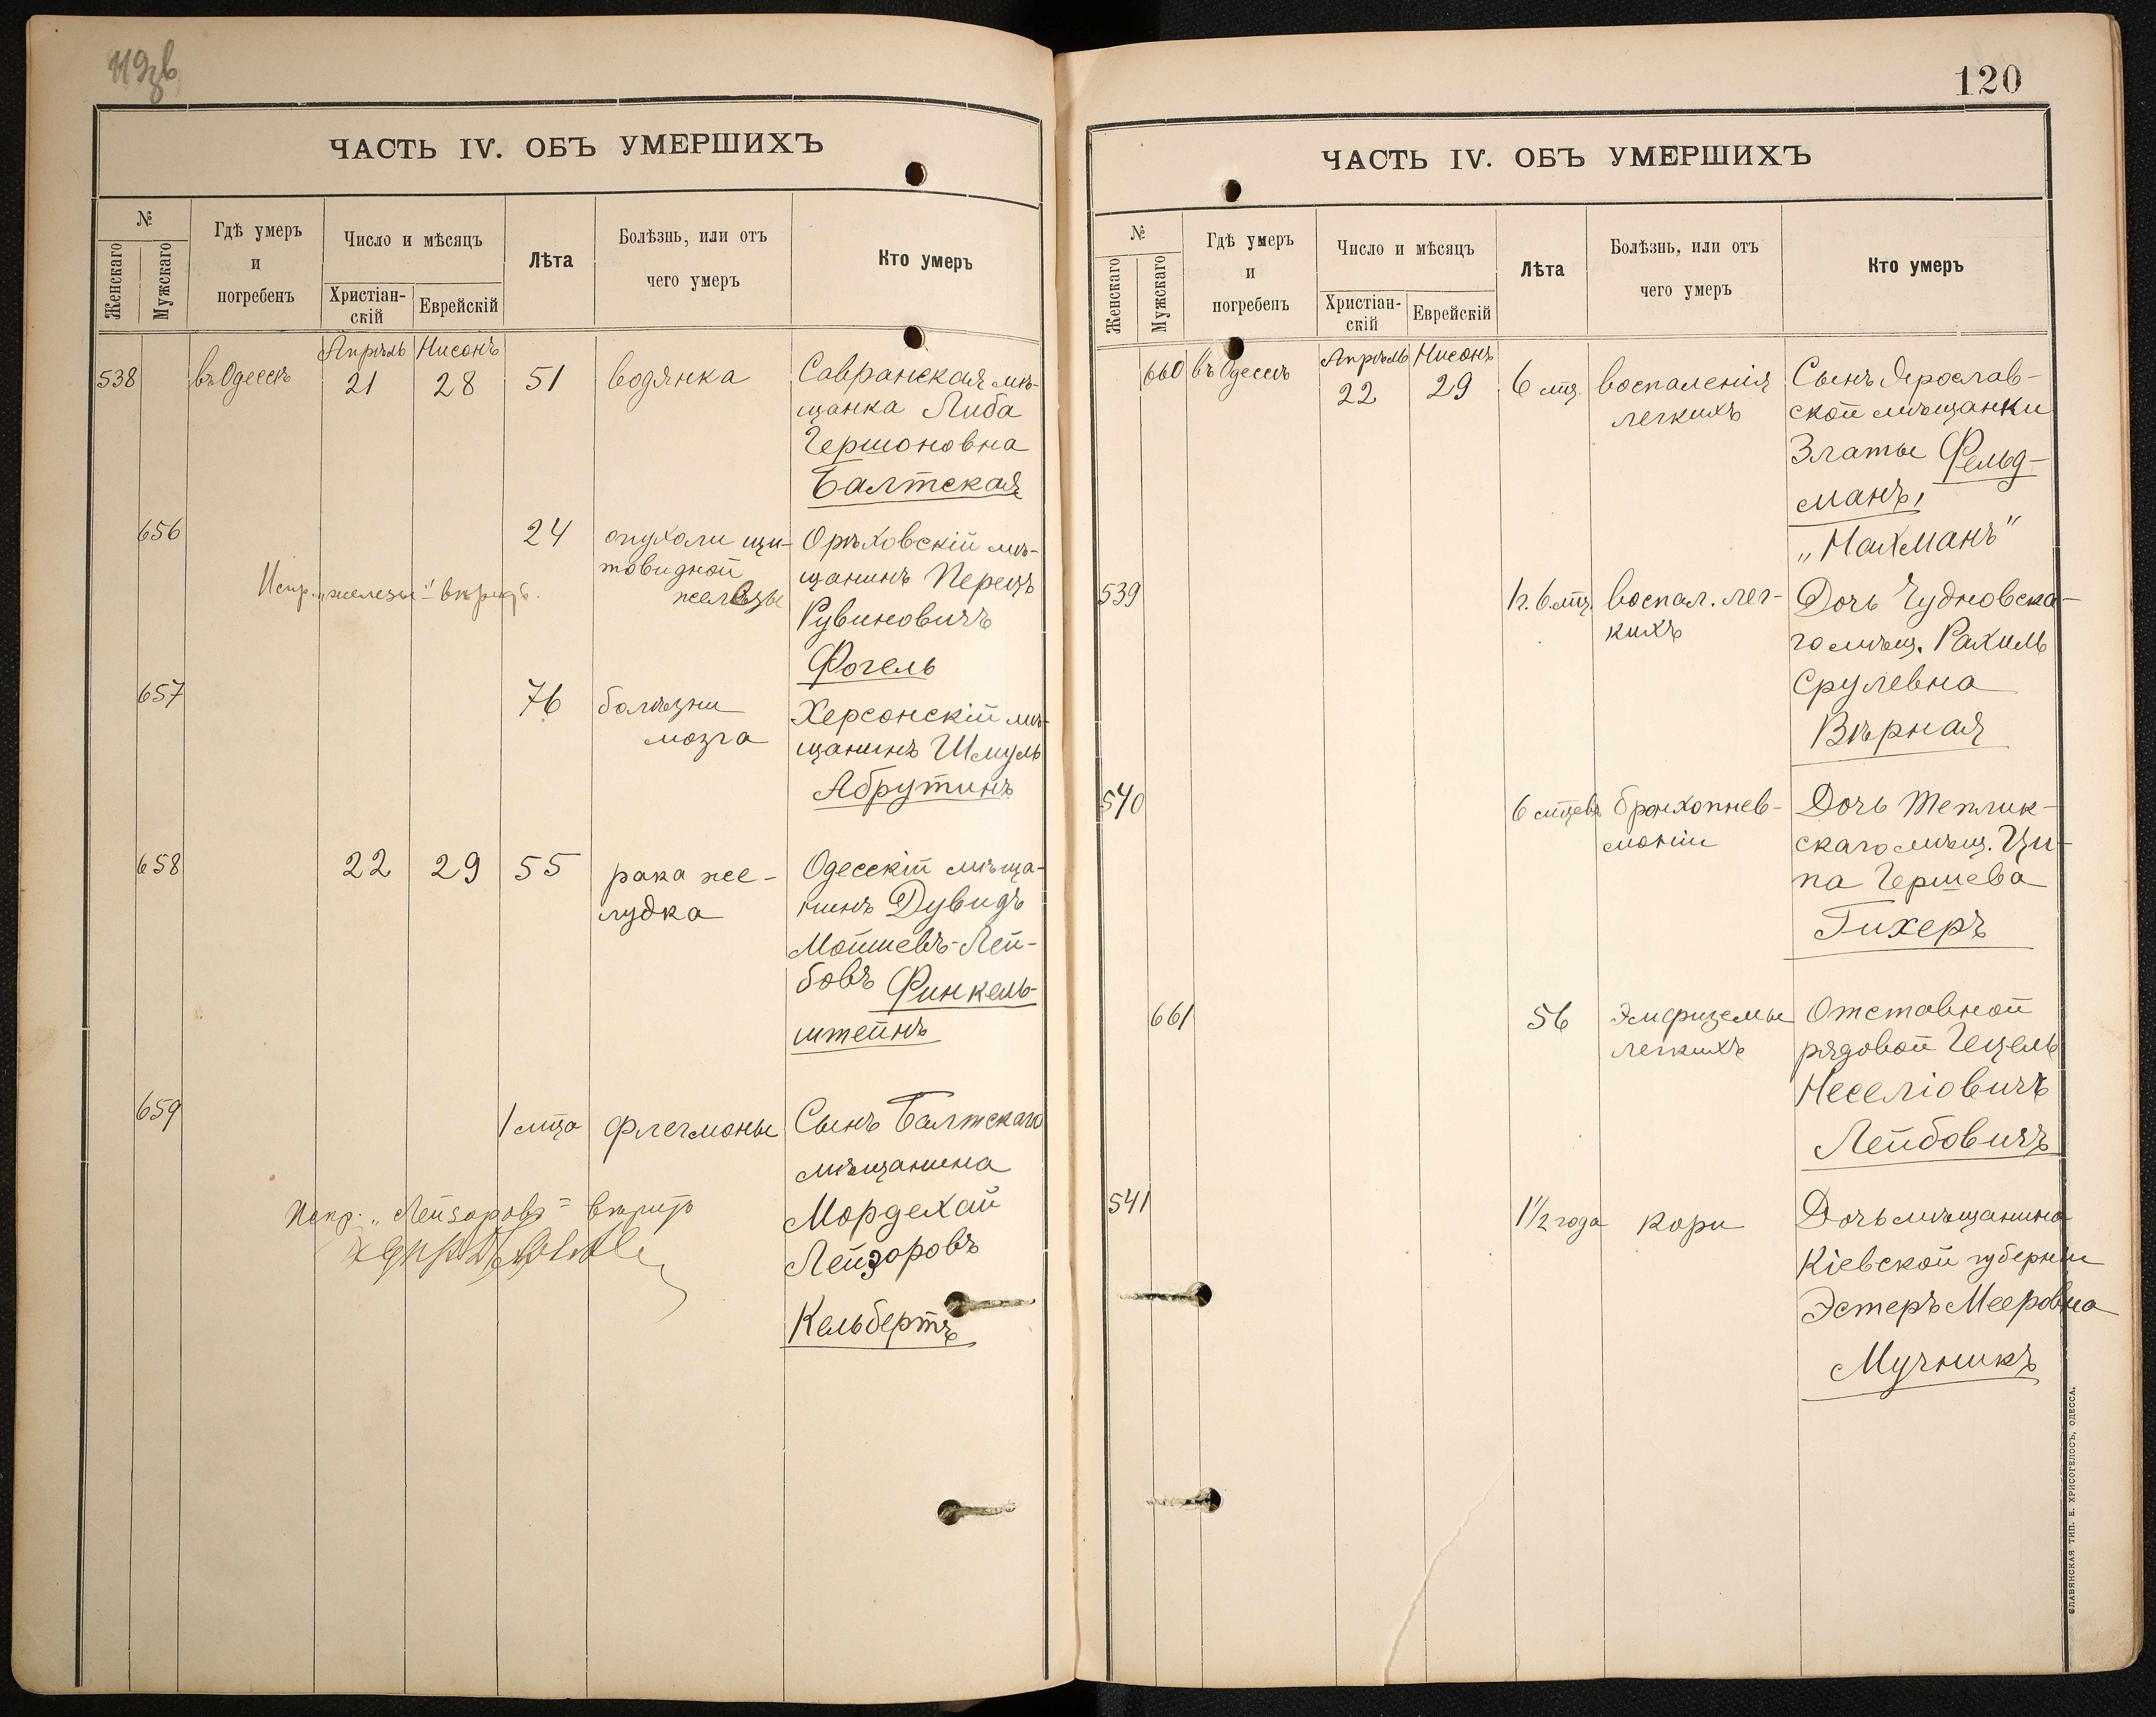 ЧАСТЬ IV. ОБЪ УМЕРШИХЪ
№
Женскаго
Мужскаго
Гдѣ умеръ
и
погребенъ
Число и мѣсяцъ
Христіан-
скій
Еврейскій
Лѣта
Болѣзнь, или отъ
чего умеръ
Кто умеръ
538 въ Одессѣ Апрѣль 21 Нисонъ 28 51 водянка Савранская мѣ-
щанка Либа
Гершоновна
Балтская
656 24 опухоли щи- Орѣховскій мѣ-
товидной щанинъ Перецъ
железы Рувиновичъ
Испр. „железы“ вѣрно.
Фогель
657 76 болѣзни Херсонскій мѣ-
мозга щанинъ Шмуль
Абрутинъ
658 22 29 55 рака же- Одесскій мѣща-
лудка нинъ Дувидъ
Мошевъ-Лей-
бовъ Финкель-
штейнъ
659 1 мца флегмоны Сынъ Балтскаго
мѣщанина
Мордехай
Испр. „Лейзоровъ“
Лейзоровъ
Кельбертъ
120
ЧАСТЬ IV. ОБЪ УМЕРШИХЪ
№
Женскаго
Мужскаго
Гдѣ умеръ
и
погребенъ
Число и мѣсяцъ
Христіан-
скій
Еврейскій
Лѣта
Болѣзнь, или отъ
чего умеръ
Кто умеръ
660 въ Одессѣ Апрѣль 22 Нисонъ 29 6 мц. воспаленія Сынъ Ярослав-
легкихъ ской мѣщанки
Златы Фельд-
манъ,
„Нахманъ“
539 1 г. 6 мц. воспал. лег- Дочь Чудновска-
кихъ го мѣщ. Рахиль
Срулевна
Вѣрная
540 6 мцевъ бронхопнев- Дочь Теплик-
моніи скаго мѣщ. Ци-
па Гершева
Гихеръ
661 56 Эмфиземы Отставной
легкихъ рядовой Гецель
Неселіовичъ
Лейбовичъ
541 1½ года кори Дочь мѣщанина
Кіевской губерніи
Эстеръ Мееровна
Мучникъ
СЛАВЯНСКАЯ ТИП. Е. ХРИСОГЕЛОСЪ, ОДЕССА.